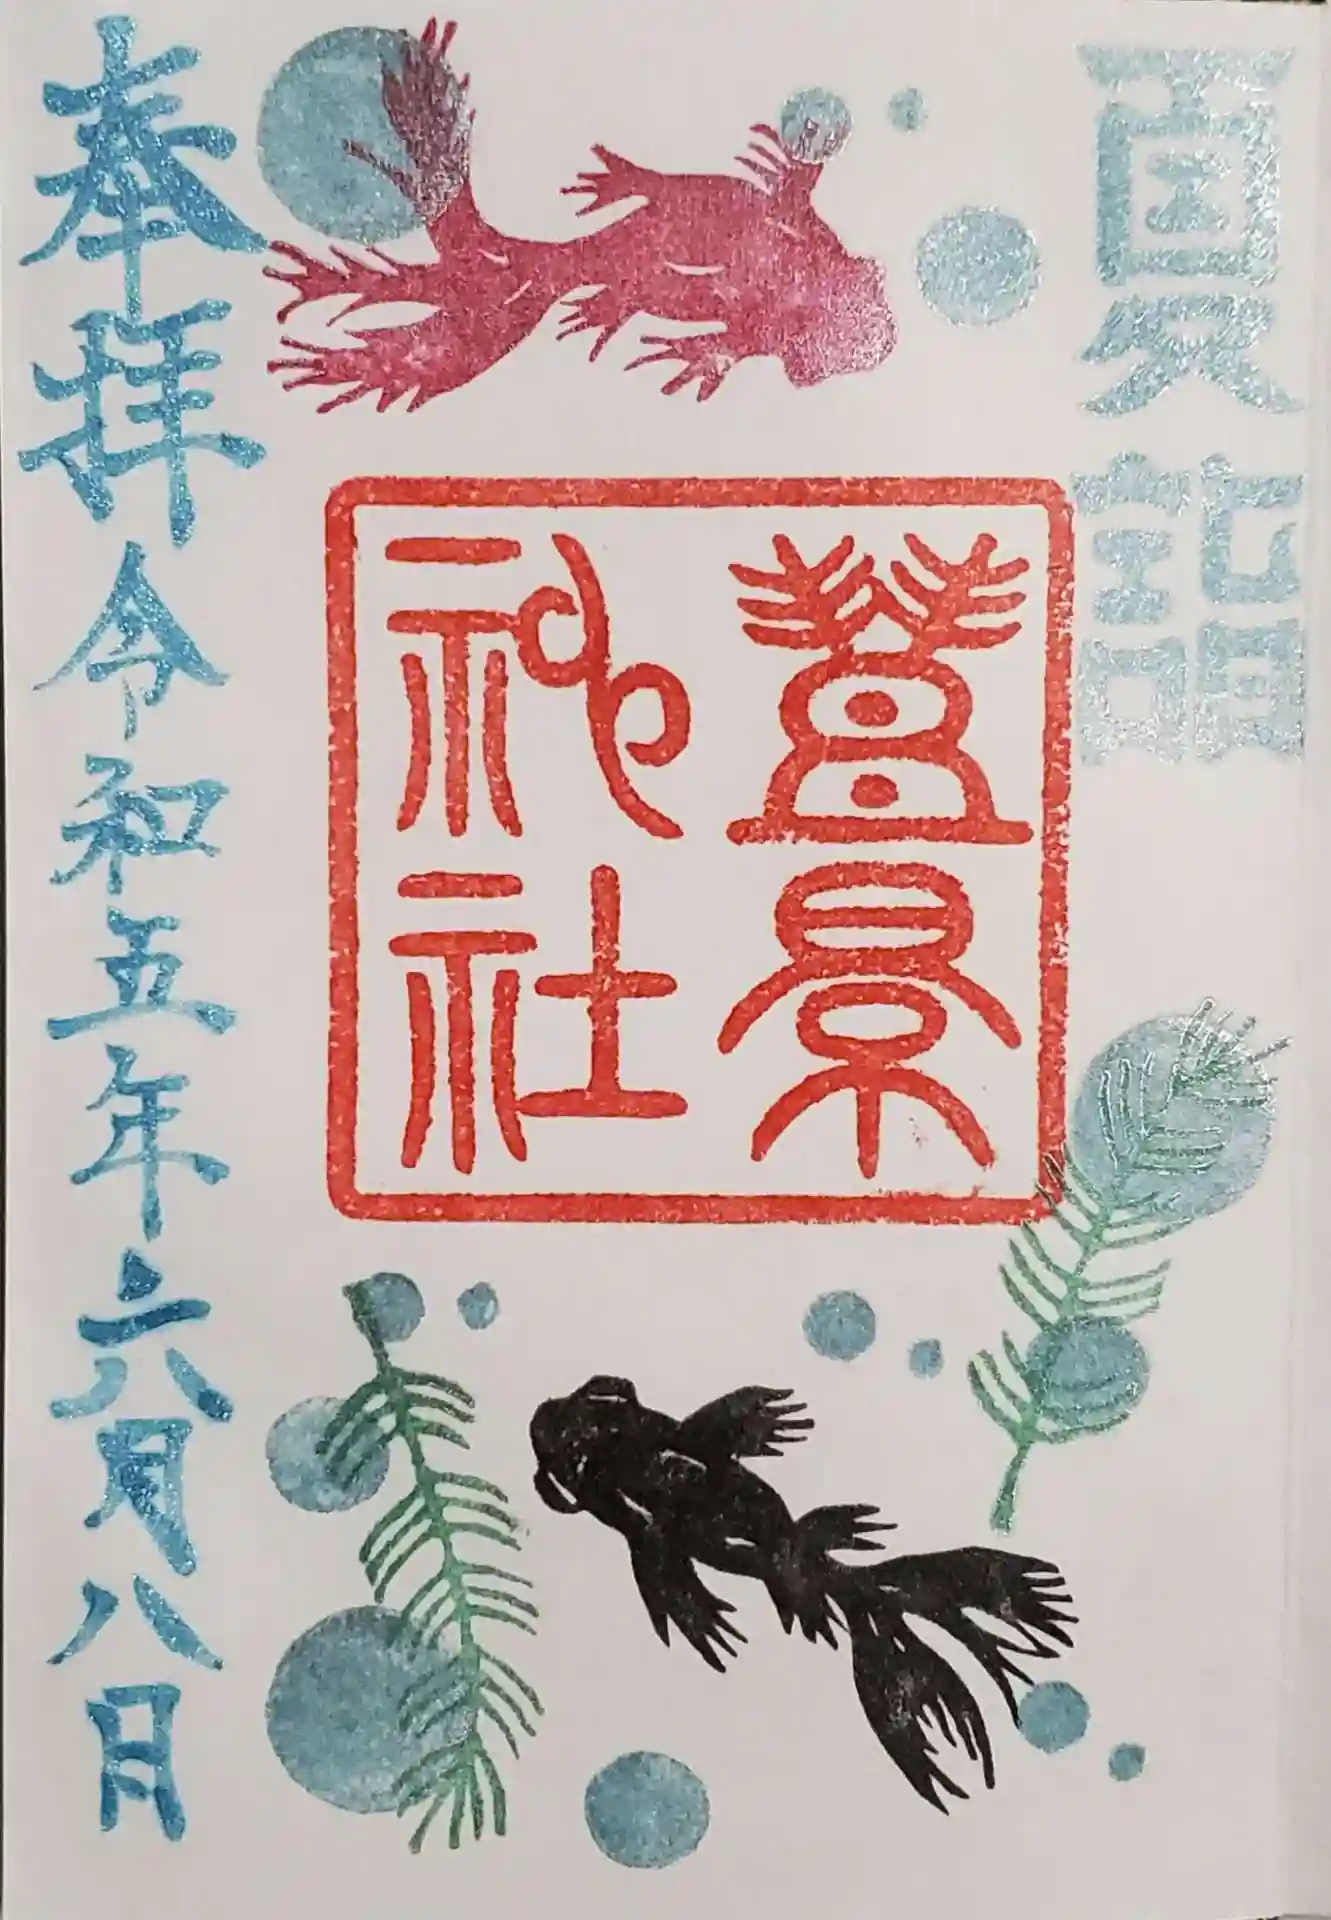 夏詣
豊景
神社
奉拝 令和五年六月八日